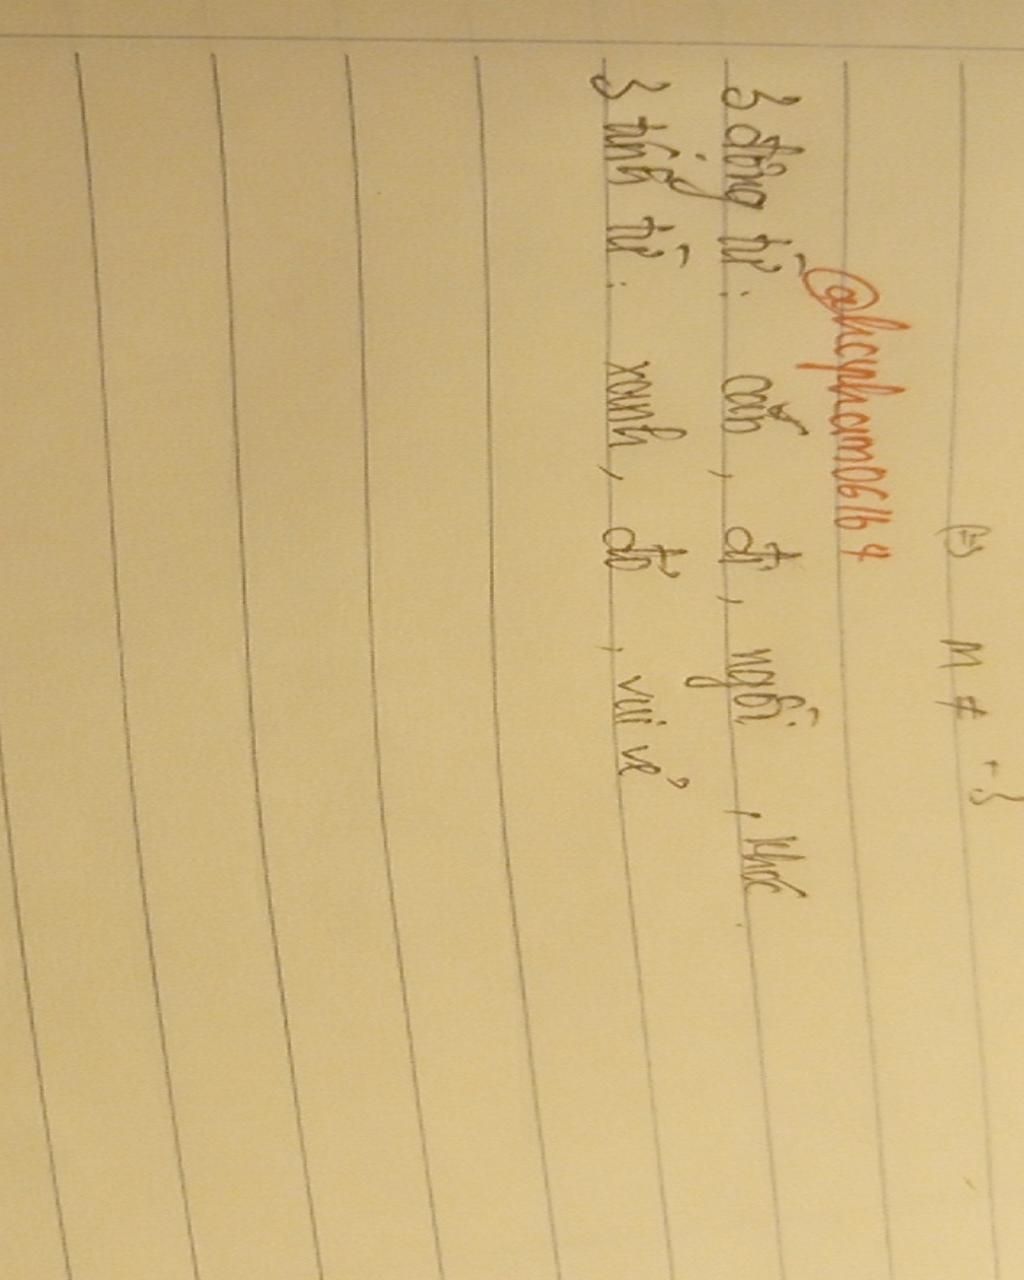 (=) M ≠ -3
@hcpham06164
3 động từ: cắn, đi, ngồi, khóc.
3 tính từ: xanh, đỏ, vui vẻ